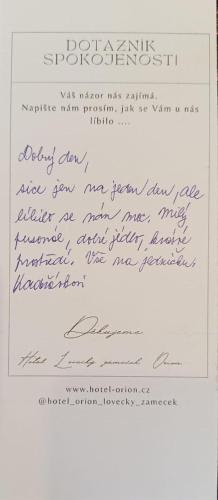 DOTAZNÍK
SPOKOJENOSTI
Váš názor nás zajímá.
Napište nám prosím, jak se Vám u nás
líbilo ....
Dobrý den,
sice jen na jeden den, ale
líbilo se nám moc. Milý
personál, dobré jídlo, krásné
prostředí. Vše na jedničku.
Děkujeme
Hotel Lovecký zámeček Orion
www.hotel-orion.cz
@hotel_orion_lovecky_zamecek